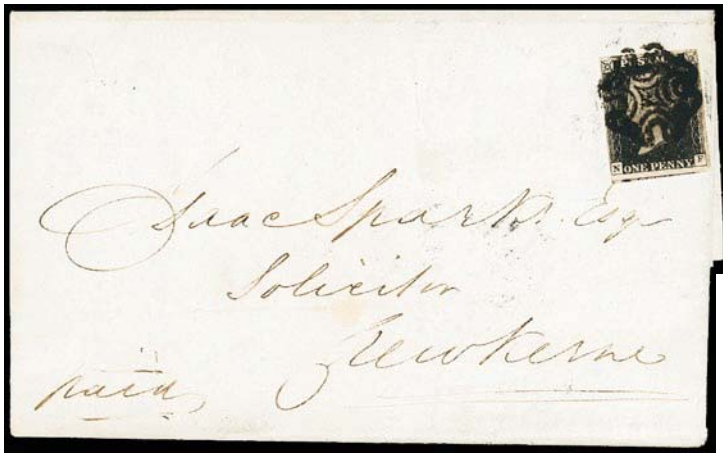 POSTAGE
N ONE PENNY F
Isaac Sparks Esqr
Solicitor
Crewkerne
paid